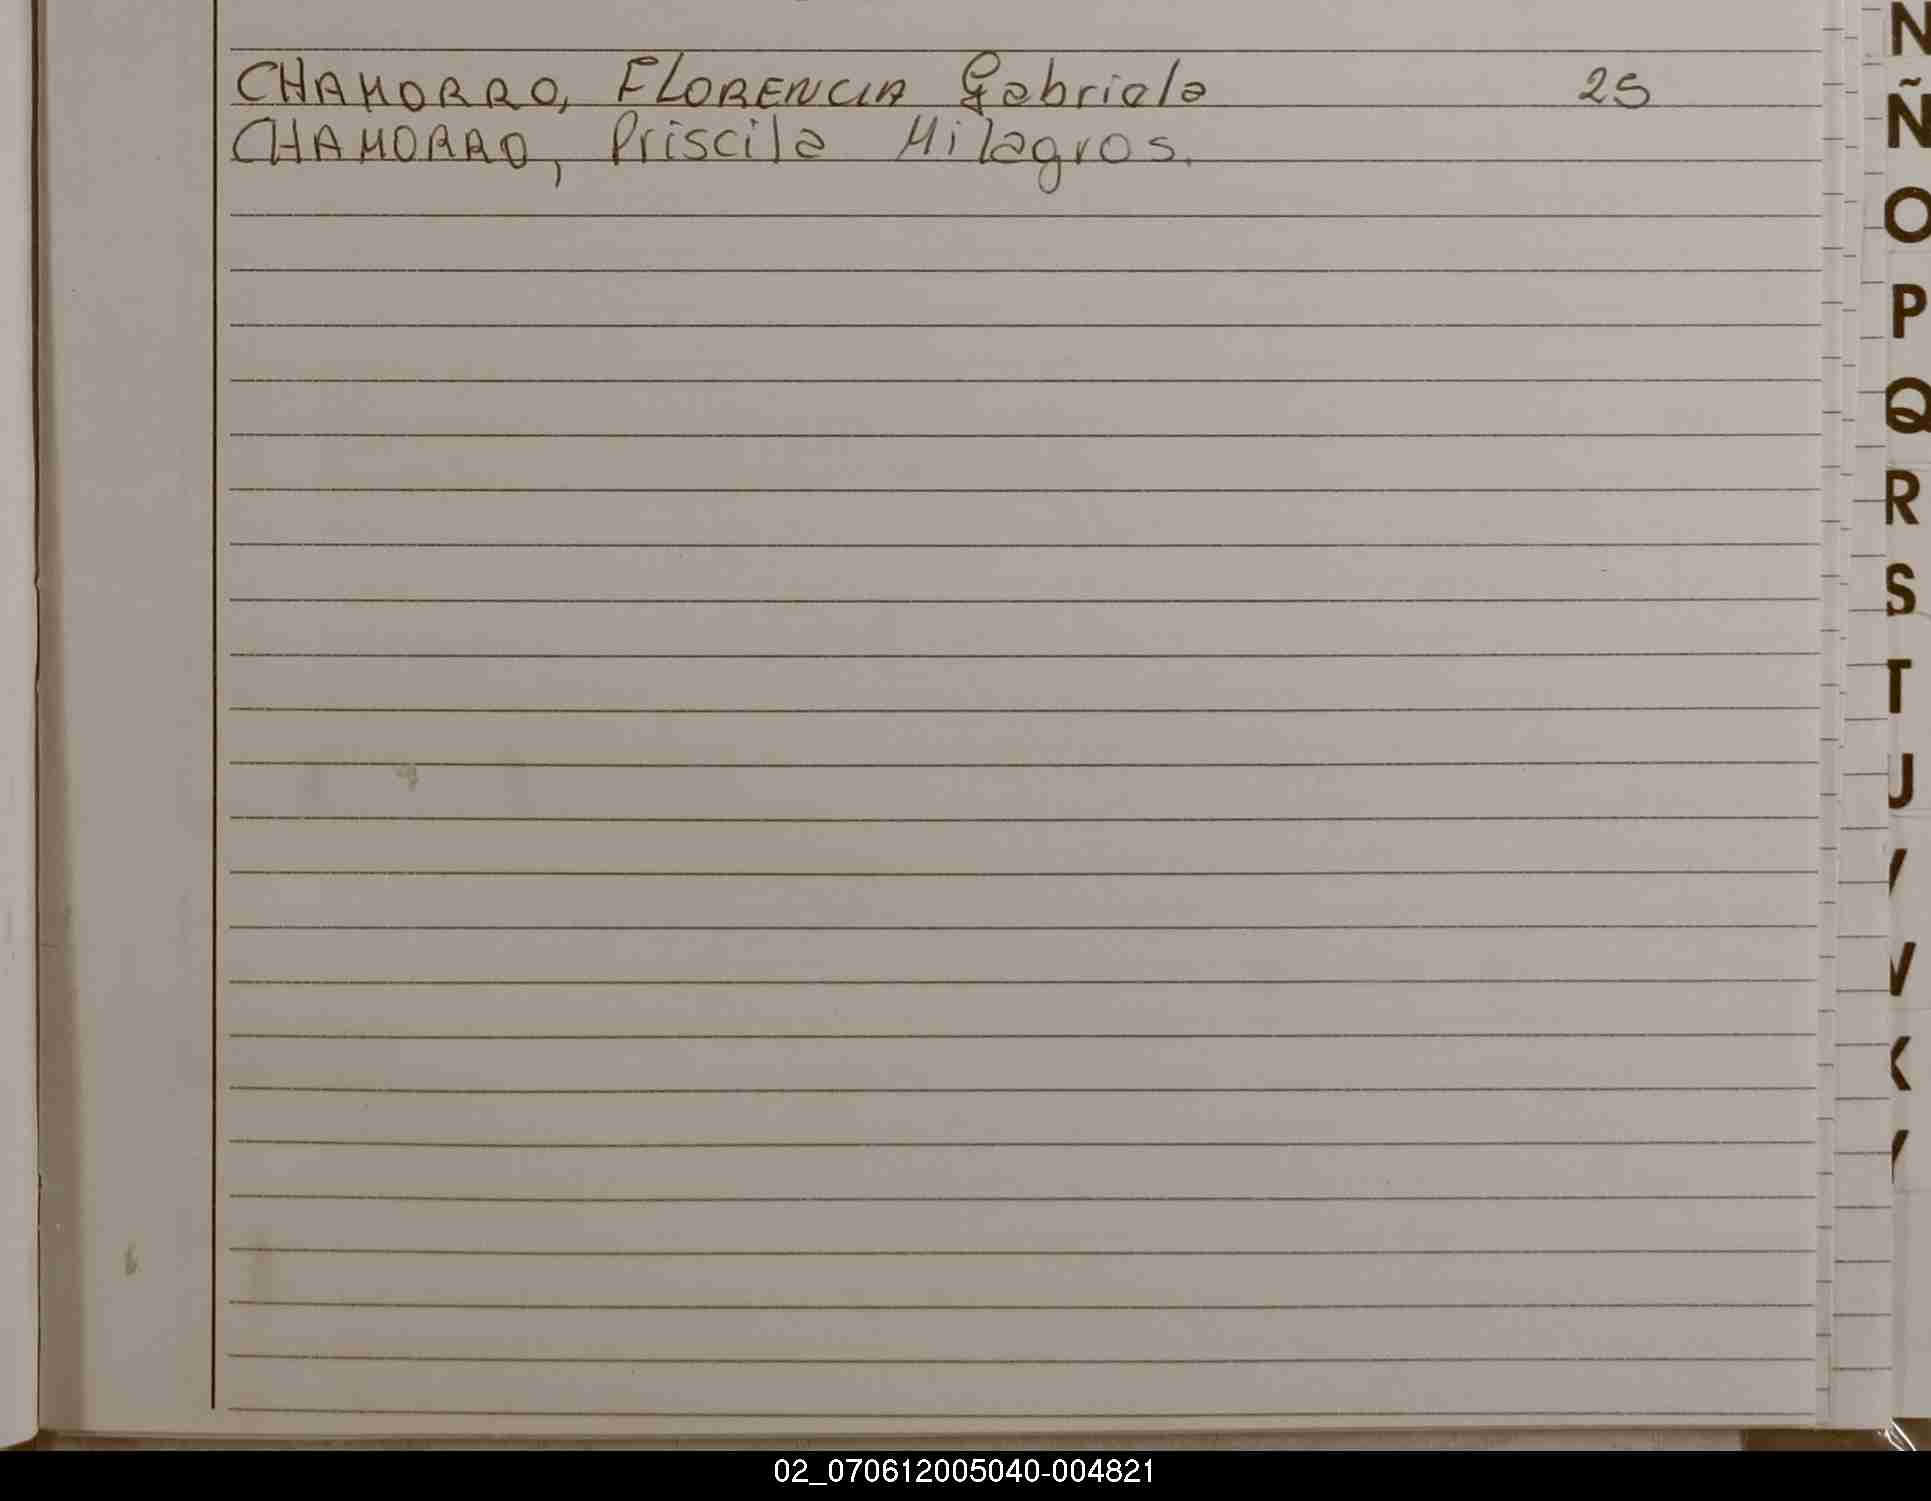 CHAMORRO, FLORENCIA Gabriela 25
CHAMORRO, Priscila Milagros.
N
Ñ
O
P
Q
R
S
T
U
V
W
X
Y
02_070612005040-004821